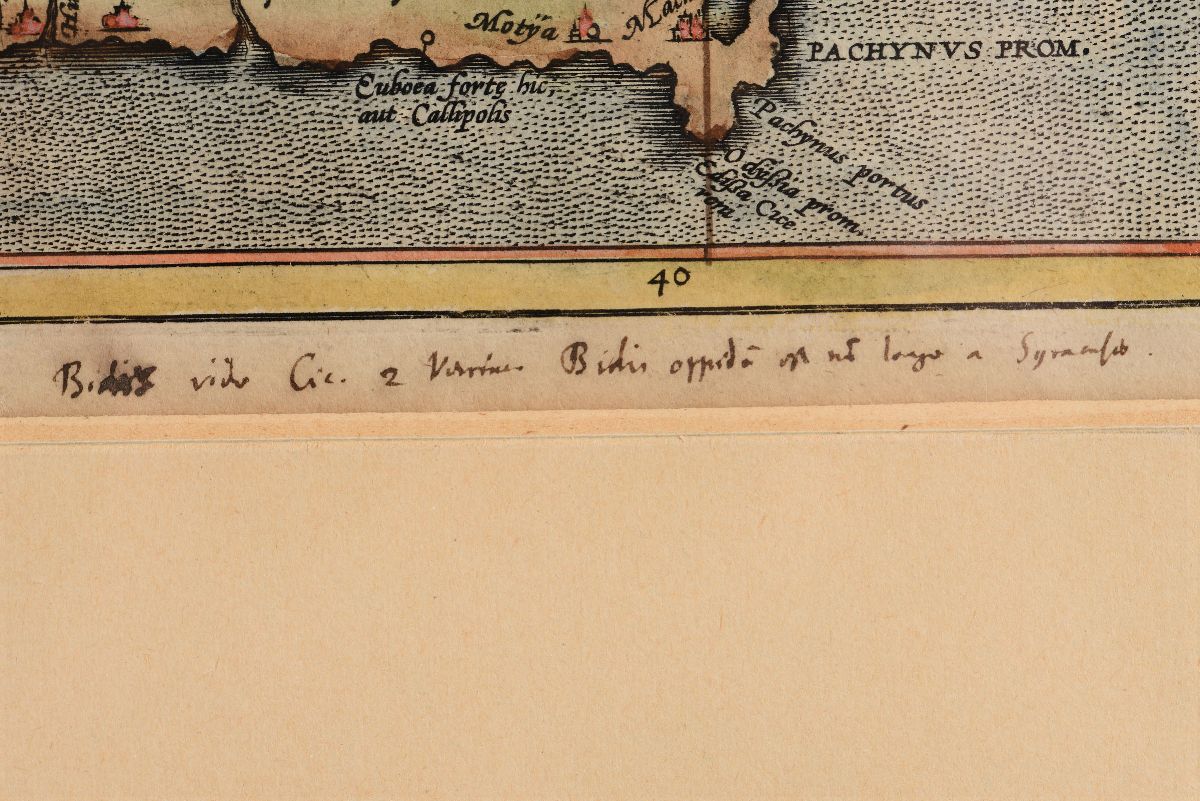 Motÿa
PACHYNVS PROM.
Euboea forte hic,
aut Callipolis
Pachynus portus
Odyssia prom.
Edissa Cice
roni
40
Bidis vide Cic. 2 Verrina. Bidis oppidū est nō longe a Syracusis.